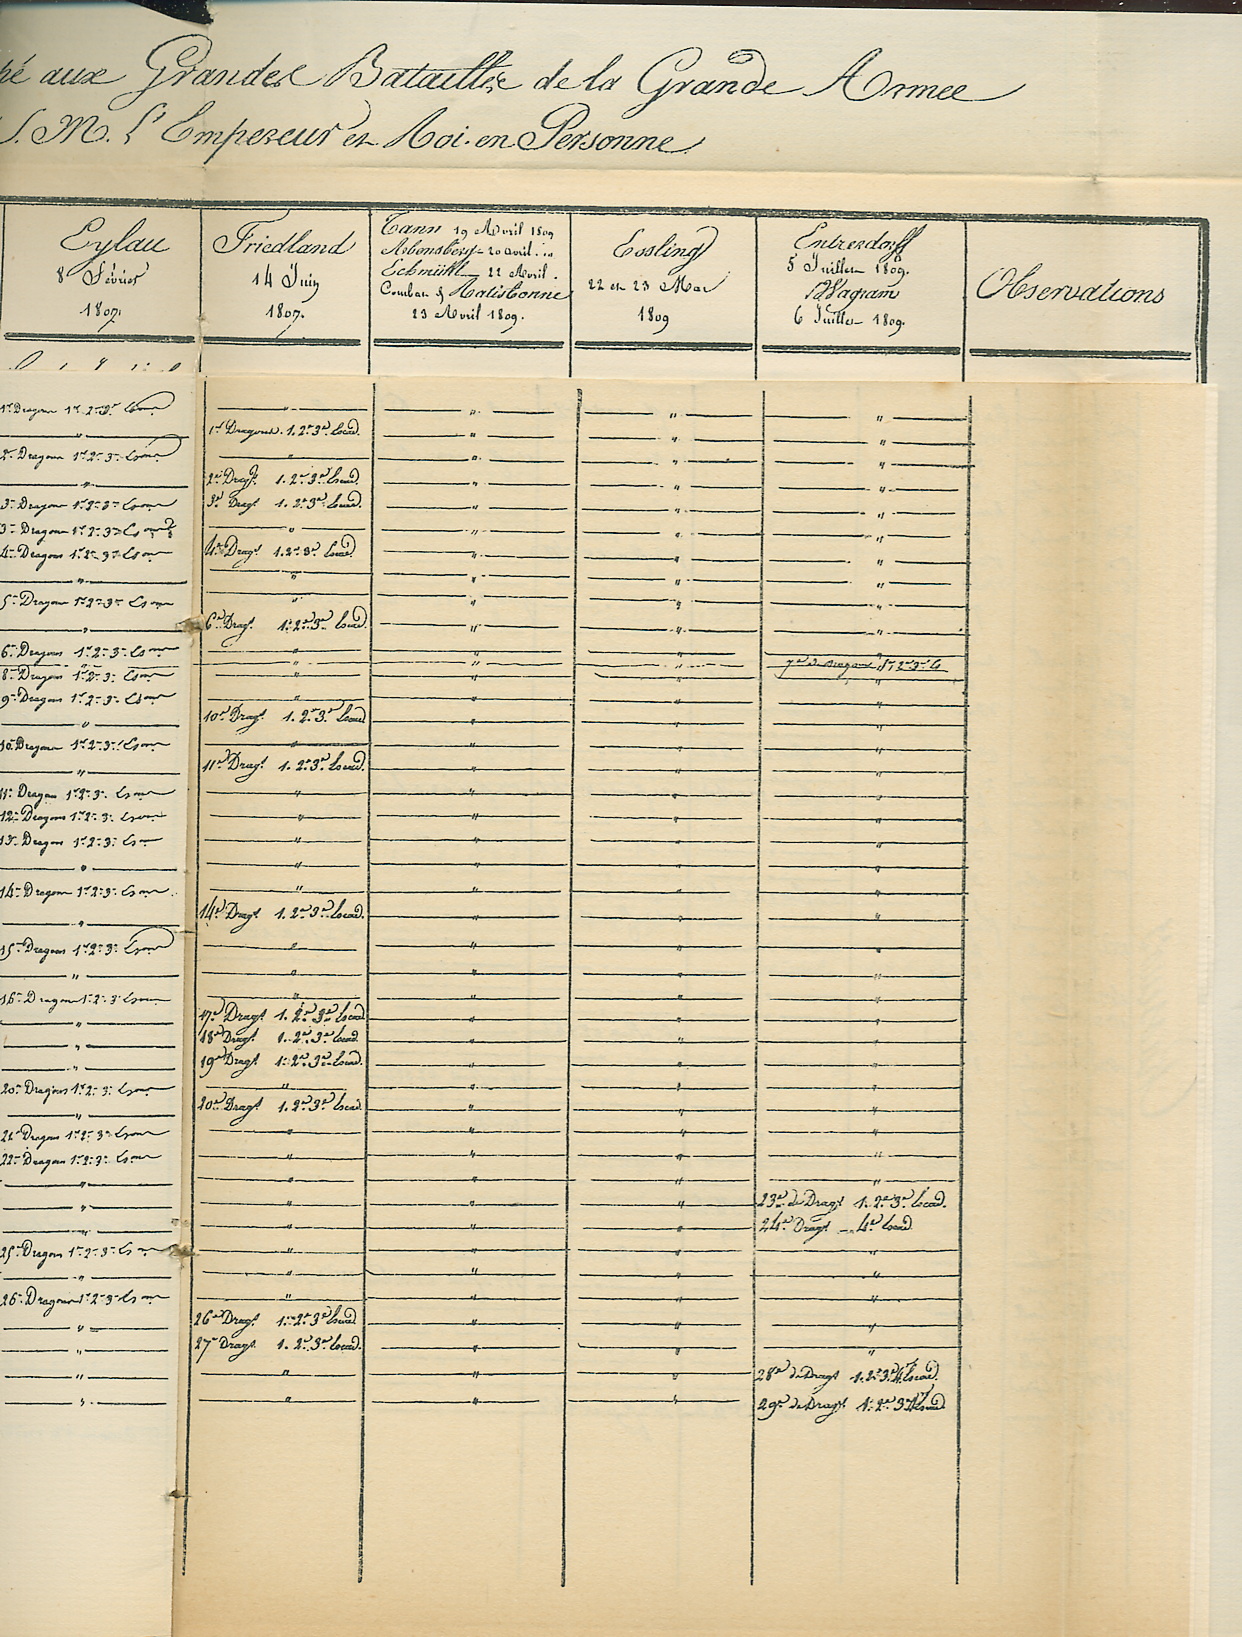 hé aux Grandes Batailles de la Grande Armee
S. M. l'Empereur et Roi en Personne
Eylau
8 Février
1807.
Friedland
14 Juin
1807.
Tann 19 Avril 1809
Abensberg 20 avril
Eckmühl 22 Avril.
Combat de Ratisbonne
23 Avril 1809.
Essling
22 et 23 Mai
1809
Entzersdorff
5 Juillet 1809.
Wagram
6 Juillet 1809.
Observations
1er Dragons 1er 2e 3e Es
1er Dragons. 1. 2e 3e Escad.
2e Dragons 1er 2e 3e Es
2e Drag. 1. 2e 3e Escad.
3e Dragons 1er 2e 3e Es
3e Drag. 1. 2e 3e Escad.
3e Dragons 1er 2e 3e Es
4e Dragons 1er 2e 3e Es
4e Drag. 1. 2e 3e Escad.
5e Dragons 1er 2e 3e Es
6e Drag. 1. 2e 3e Escad.
6e Dragons 1er 2e 3e Es
7e de Dragons 1er 2e 3e Es
8e Dragons 1er 2e 3e Es
9e Dragons 1er 2e 3e Es
10e Drag. 1. 2e 3e Escad.
10e Dragons 1er 2e 3e Es
11e Drag. 1. 2e 3e Escad.
11e Dragons 1er 2e 3e Es
12e Dragons 1er 2e 3e Es
13e Dragons 1er 2e 3e Es
14e Dragons 1er 2e 3e Es
14e Drag. 1. 2e 3e Escad.
15e Dragons 1er 2e 3e Es
16e Dragons 1er 2e 3e Es
17e Drag. 1. 2e 3e Escad.
18e Drag. 1. 2e 3e Escad.
19e Drag. 1. 2e 3e Escad.
20e Dragons 1er 2e 3e Es
20e Drag. 1. 2e 3e Escad.
21e Dragons 1er 2e 3e Es
22e Dragons 1er 2e 3e Es
23e de Drag. 1. 2e 3e Escad.
24e Drag. 4e Escad.
25e Dragons 1er 2e 3e Es
26e Dragons 1er 2e 3e Es
26e Drag. 1. 2e 3e Escad.
27e Drag. 1. 2e 3e Escad.
28e de Drag. 1. 2e 3e 4e Escad.
29e de Drag. 1. 2e 3e 4e Escad.